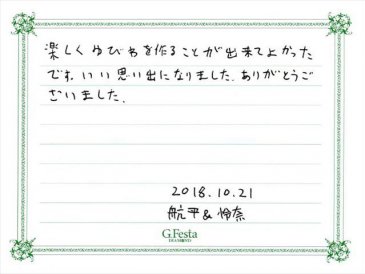 楽しくゆびわを作ることが出来てよかった
です。いい思い出になりました。ありがとうご
ざいました。
2018.10.21
航平&伸奈
G.Festa
DIAMOND